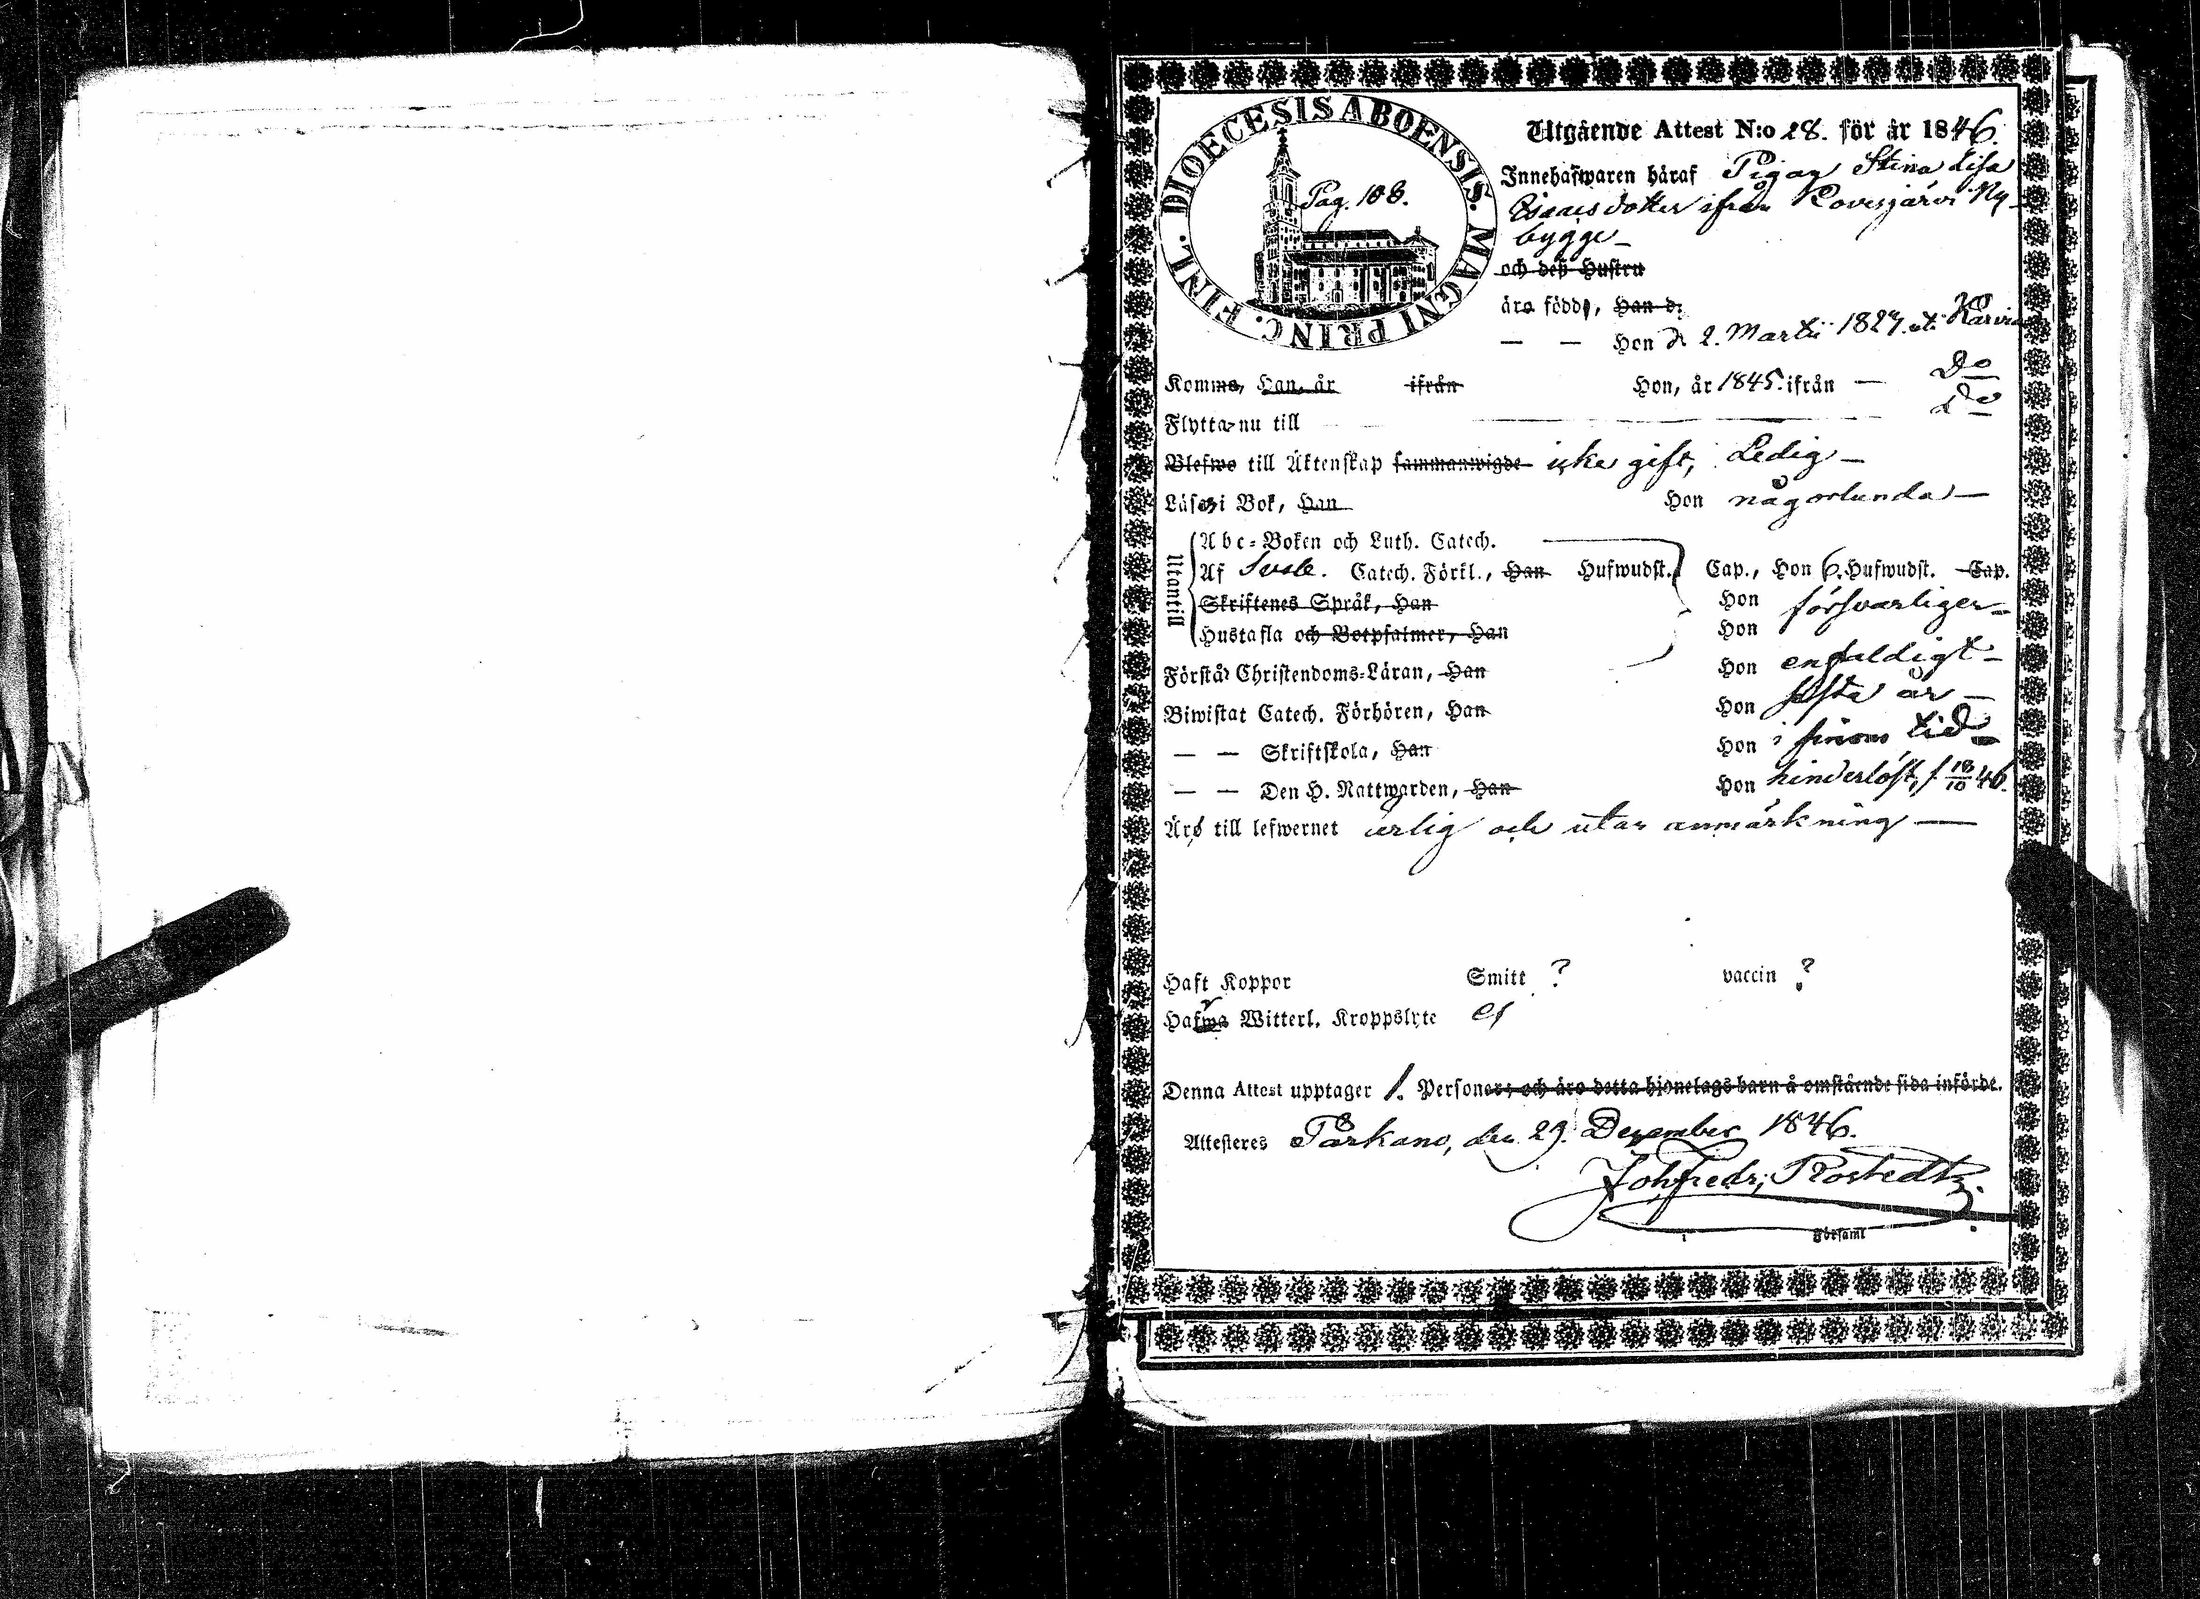 DIOECESIS ABOENSIS. MAGNI PRINC. FINL.
Pag. 108.
Utgående Attest N:o 28. för år 1846.
Innehafwaren häraf Pigan Stina Lisa
Isaacsdotter ifrån Kovesjärvi Ny-
bygge
och deß Hustru
äro födde, Han d.
— — Hon d. 2. Martii 1827. uti Karvia
Komma, Han, år ifrån Hon, år 1845. ifrån — Do
Flytta nu till Do
Blefwo till Äktenskap sammanwigde icke gift, Ledig —
Läsa i Bok, Han Hon någorlunda —
Utantill
Abc-Boken och Luth. Catech.
Af Svele. Catech. Förkl., Han Hufwudst. Cap., Hon 6. Hufwudst. Cap.
Skriftenes Språk, Han Hon försvarliger
Hustafla och Botpsalmer, Han Hon
Förstår Christendoms-Läran, Han Hon enfaldigt —
Biwistat Catech. Förhören, Han Hon sista år —
— — Skriftskola, Han Hon i sinom tid
— — Den H. Nattwarden, Han Hon hinderlöst, s. 18/10 46.
Äro till lefwernet ärlig och utan anmärkning —
Haft Koppor Smitt ? vaccin ?
Hafwa Witterl. Kroppslyte ej
Denna Attest upptager 1. Personer, och äro detta hjonelags barn å omstående sida införde.
Attesteres Parkano, den 29. December 1846.
Joh Fredr; Rostedt
i Församl